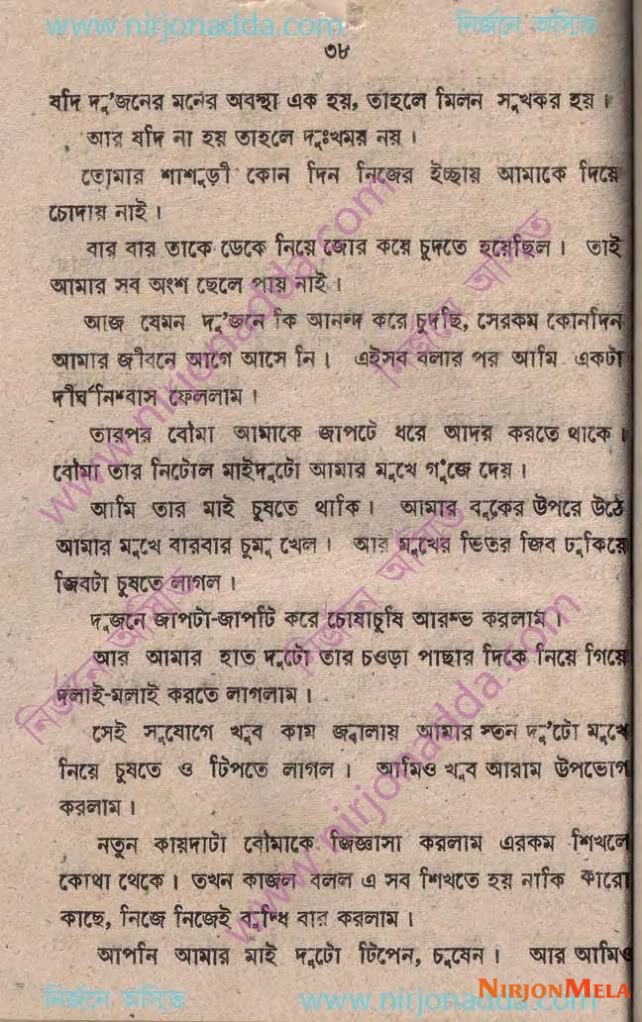 www.nirjonadda.com নির্জনে অসিত
৩৮
যদি দু'জনের মনের অবস্থা এক হয়, তাহলে মিলন সুখকর হয়।
আর যদি না হয় তাহলে দুঃখময় নয়।
তোমার শাশুড়ী কোন দিন নিজের ইচ্ছায় আমাকে দিয়ে
চোদায় নাই।
বার বার তাকে ডেকে নিয়ে জোর করে চুদতে হয়েছিল। তাই
আমার সব অংশ ছেলে পায় নাই।
আজ যেমন দু'জনে কি আনন্দ করে চুদছি, সেরকম কোনদিন
আমার জীবনে আগে আসে নি। এইসব বলার পর আমি একটা
দীর্ঘনিশ্বাস ফেললাম।
তারপর বৌমা আমাকে জাপটে ধরে আদর করতে থাকে।
বৌমা তার নিটোল মাইদুটো আমার মুখে গুঁজে দেয়।
আমি তার মাই চুষতে থাকি। আমার বুকের উপরে উঠে
আমার মুখে বারবার চুমু খেল। আর মুখের ভিতর জিব ঢুকিয়ে
জিবটা চুষতে লাগল।
দুজনে জাপটা-জাপটি করে চোষাচুষি আরম্ভ করলাম।
আর আমার হাত দুটো তার চওড়া পাছার দিকে নিয়ে গিয়ে
দলাই-মলাই করতে লাগলাম।
সেই সুযোগে খুব কাম জ্বালায় আমার স্তন দু'টো মুখে
নিয়ে চুষতে ও টিপতে লাগল। আমিও খুব আরাম উপভোগ
করলাম।
নতুন কায়দাটা বৌমাকে জিজ্ঞাসা করলাম এরকম শিখলে
কোথা থেকে। তখন কাজল বলল এ সব শিখতে হয় নাকি কারো
কাছে, নিজে নিজেই বুদ্ধি বার করলাম।
আপনি আমার মাই দুটো টিপেন, চুষেন। আর আমিও
NIRJONMELA
নির্জনে অসিত www.nirjonadda.com
www.nirjonadda.com
নির্জনে অসিত
নির্জনে অসিত
নির্জনে অসিত
www.nirjonadda.com